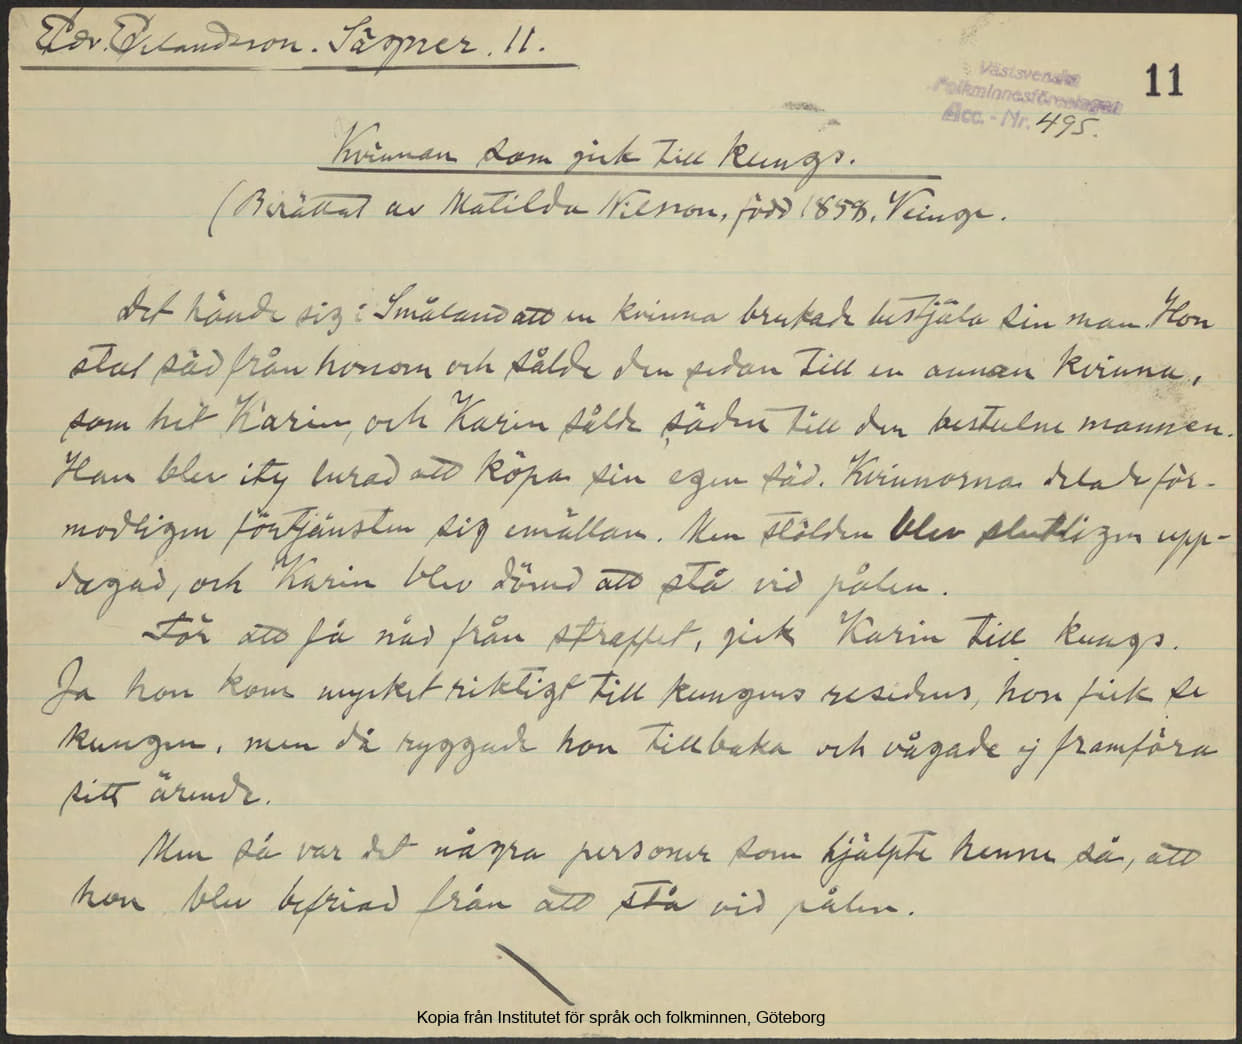 Edv. Erlandsson. Sägner. 11.
11
Västsvenska
Folkminnesföreningen
Acc. - Nr. 495.
Kvinnan som gick till kungs.
(Berättat av Matilda Nilsson, född 1858, Veinge.
Det hände sig i Småland att en kvinna brukade bestjäla sin man. Hon
stal säd från honom och sålde den sedan till en annan kvinna,
som het Karin, och Karin sålde säden till den bestulne mannen.
Han blev ity lurad att köpa sin egen säd. Kvinnorna delade för-
modligen förtjänsten sig emällan. Men stölden blev slutligen upp-
dagad, och Karin blev dömd att stå vid pålen.
För att få nåd från straffet, gick Karin till kungs.
Ja hon kom mycket riktigt till kungens residens, hon fick se
kungen, men då ryggade hon tillbaka och vågade ej framföra
sitt ärende.
Men så var det några personer som hjälpte henne så, att
hon blev befriad från att stå vid pålen.
Kopia från Institutet för språk och folkminnen, Göteborg